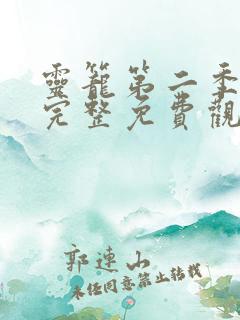 靈籠第二季
完整免費觀
郭連山
未经同意禁止转载